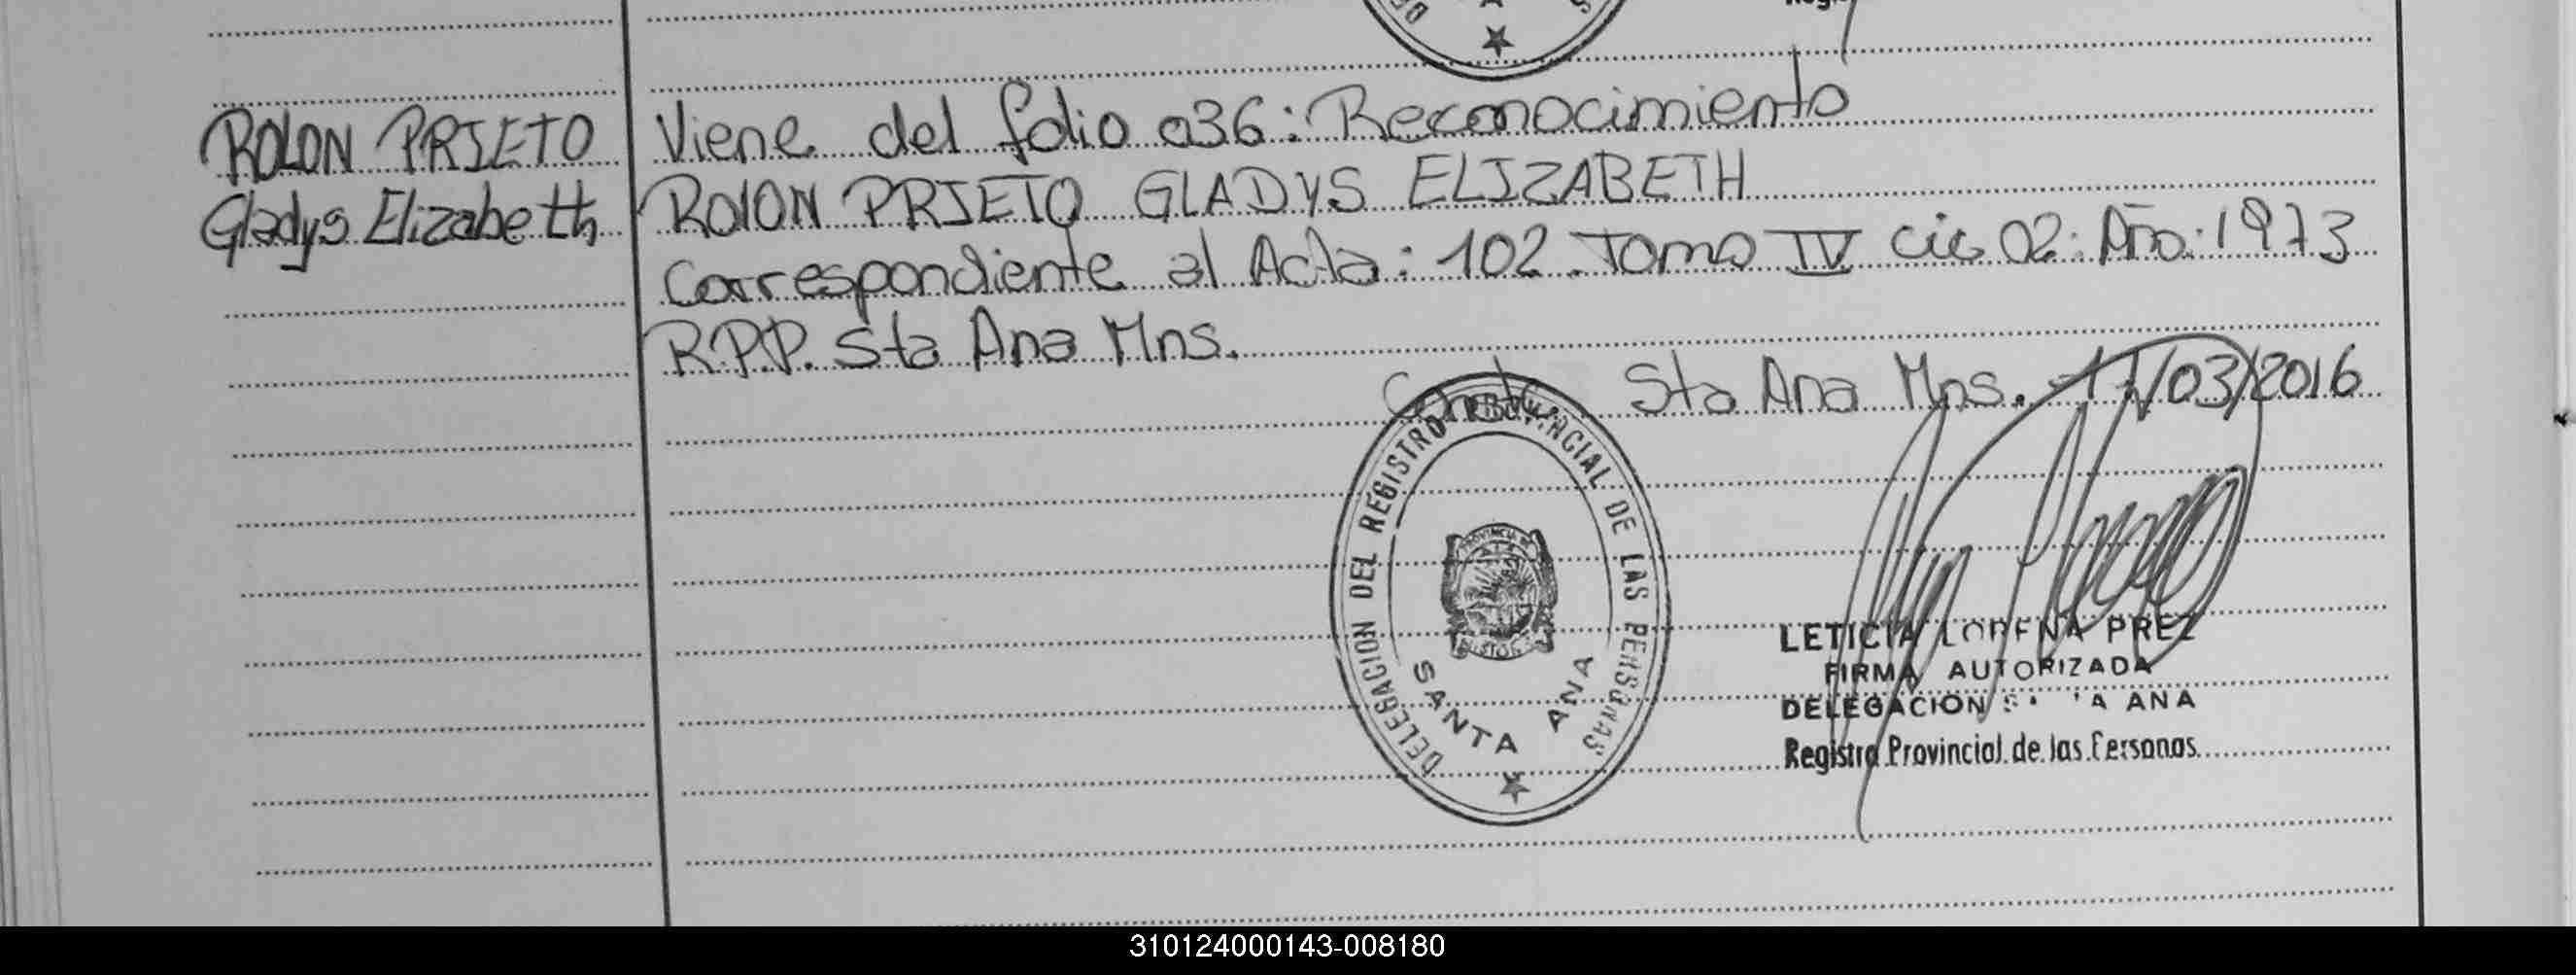 ROLON PRIETO
Gladys Elizabeth
Viene del folio 036: Reconocimiento
ROLON PRIETO GLADYS ELIZABETH
Correspondiente al Acta: 102 Tomo IV cic 02: Año: 1973
R.P.P. Sta Ana Mns.
Conste. Sta Ana Mns. /03/2016
DELEGACION DEL REGISTRO PROVINCIAL DE LAS PERSONAS
PROVINCIA DE
MISIONES
SANTA ANA
LETICIA LORENA PREZ
FIRMA AUTORIZADA
DELEGACION ANA
Registro Provincial de las Personas
310124000143-008180